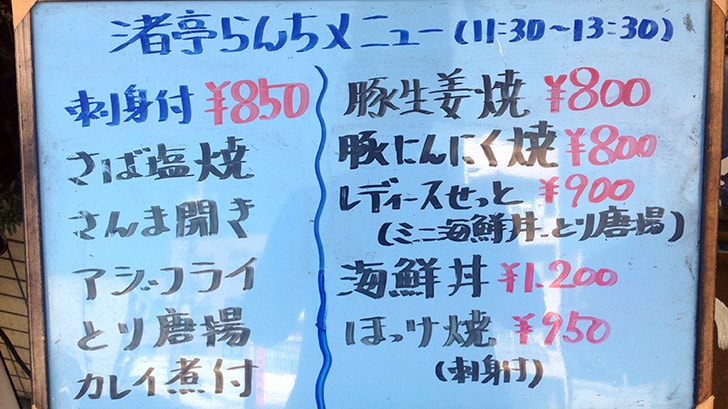 渚亭らんちメニュー(11:30~13:30)
刺身付 ¥850
さば塩焼
さんま開き
アジフライ
とり唐揚
カレイ煮付
豚生姜焼 ¥800
豚にんにく焼 ¥800
レディースせっと ¥900
(ミニ海鮮丼、とり唐揚)
海鮮丼 ¥1.200
ほっけ焼 ¥950
(刺身付)